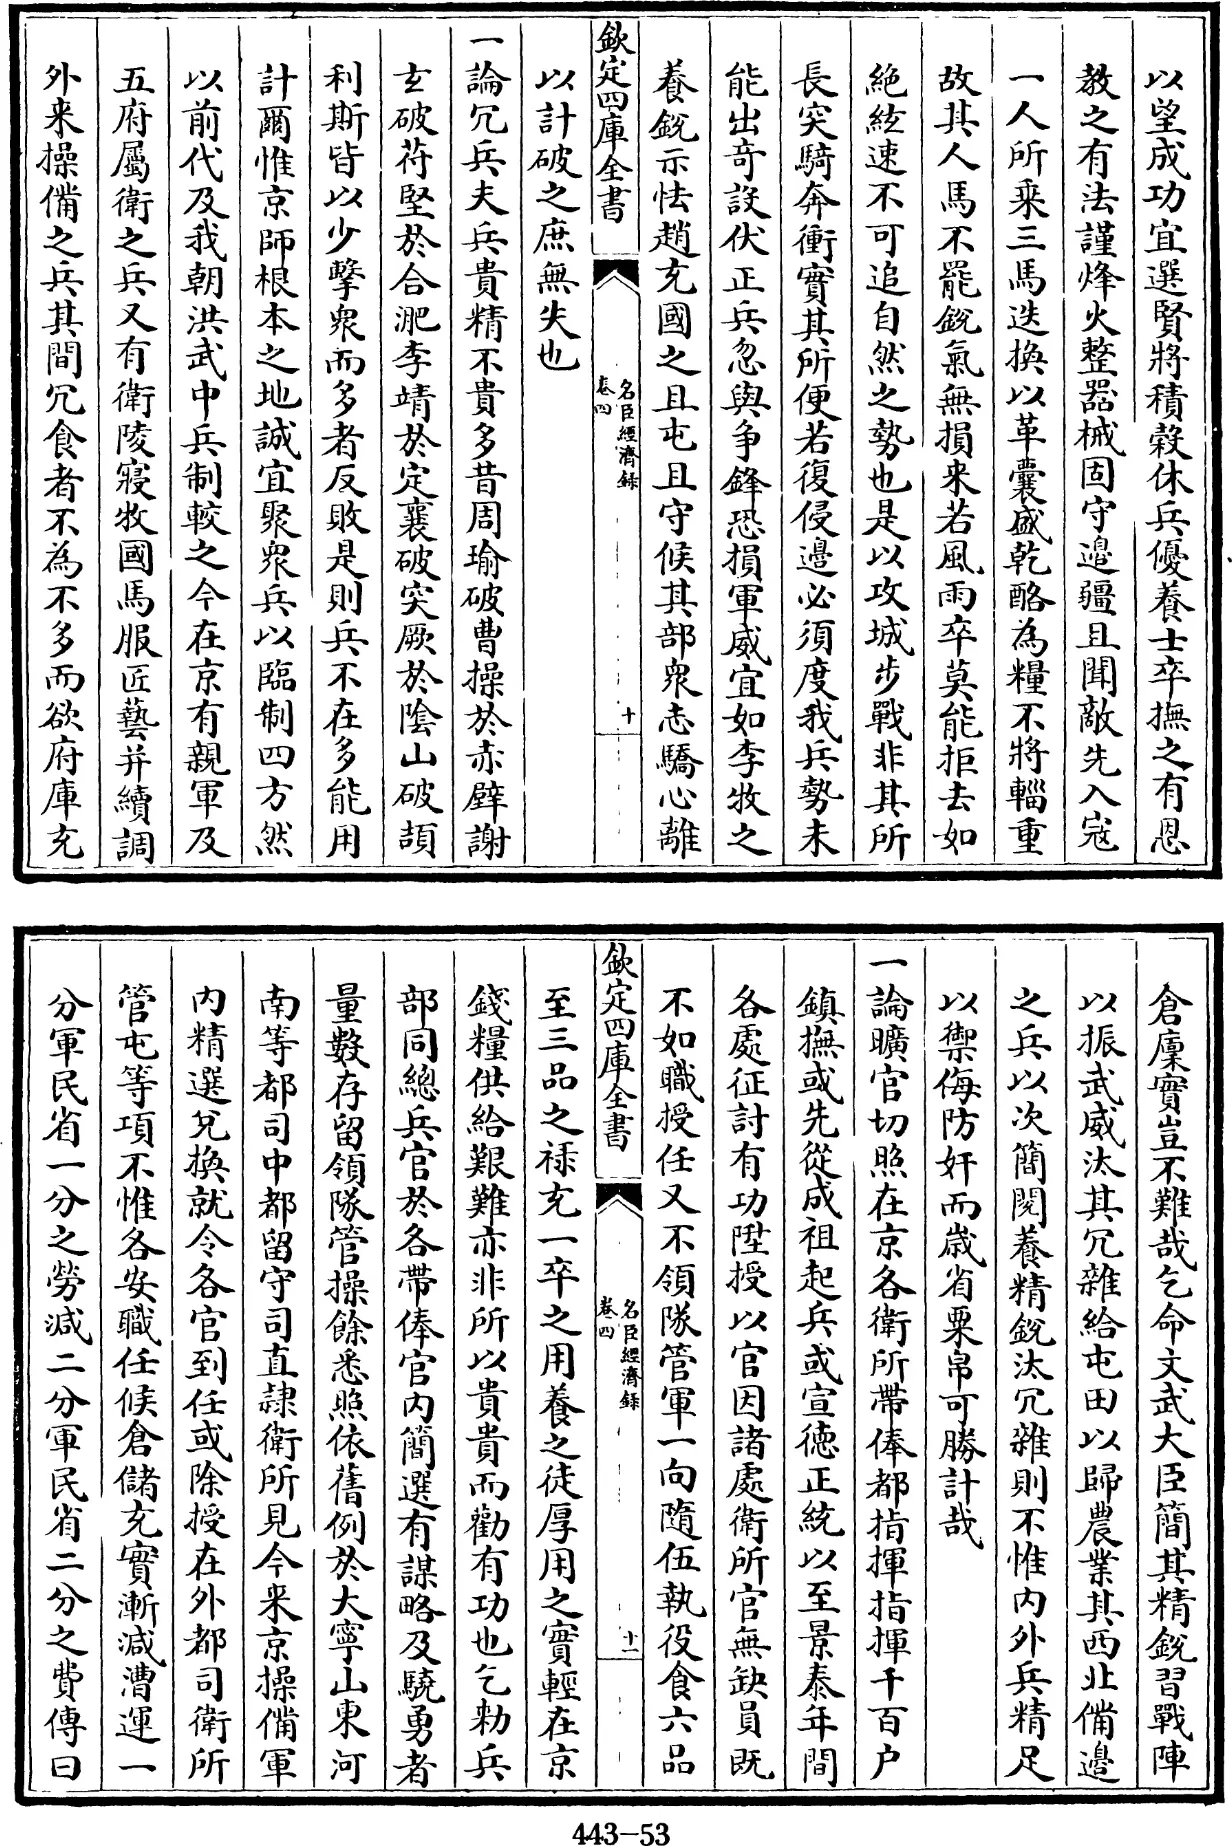 以望成功宜選賢將積穀休兵優養士卒撫之有恩
教之有法謹烽火整器械固守邉疆且聞敵先入寇
一人所乗三馬迭換以革囊盛乾酪為糧不將輜重
故其人馬不罷鋭氣無損来若風雨卒莫能拒去如
絶絃速不可追自然之勢也是以攻城步戰非其所
長突騎奔衝實其所便若復侵邉必須度我兵勢未
能出奇設伏正兵忽與争鋒恐損軍威宜如李牧之
養鋭示怯趙充國之且屯且守候其部衆志驕心離
欽定四庫全書
名臣經濟録
卷四
十
以計破之庶無失也
一論冗兵夫兵貴精不貴多昔周瑜破曹操於赤壁謝
玄破苻堅於合淝李靖於定襄破突厥於隂山破頡
利斯皆以少擊衆而多者反敗是則兵不在多能用
計爾惟京師根本之地誠宜聚衆兵以臨制四方然
以前代及我朝洪武中兵制較之今在京有親軍及
五府屬衛之兵又有衛陵寢牧國馬服匠藝并續調
外来操備之兵其間冗食者不為不多而欲府庫充
倉廩實豈不難哉乞命文武大臣簡其精鋭習戰陣
以振武威汰其冗雜給屯田以歸農業其西北備邉
之兵以次簡閲養精鋭汰冗雜則不惟内外兵精足
以禦侮防奸而歳省粟帛可勝計哉
一論曠官切照在京各衛所帶俸都指揮指揮千百户
鎮撫或先從成祖起兵或宣徳正統以至景泰年間
各處征討有功陞授以官因諸處衛所官無缺員既
不如職授任又不領隊管軍一向隨伍執役食六品
欽定四庫全書
名臣經濟録
卷四
十一
至三品之禄充一卒之用養之徒厚用之實輕在京
錢糧供給艱難亦非所以貴貴而勸有功也乞勅兵
部同總兵官於各帶俸官内簡選有謀略及驍勇者
量數存留領隊管操餘悉照依舊例於大寧山東河
南等都司中都留守司直隷衛所見今来京操備軍
内精選兌換就令各官到任或除授在外都司衛所
管屯等項不惟各安職任候倉儲充實漸減漕運一
分軍民省一分之勞減二分軍民省二分之費傳曰
443-53